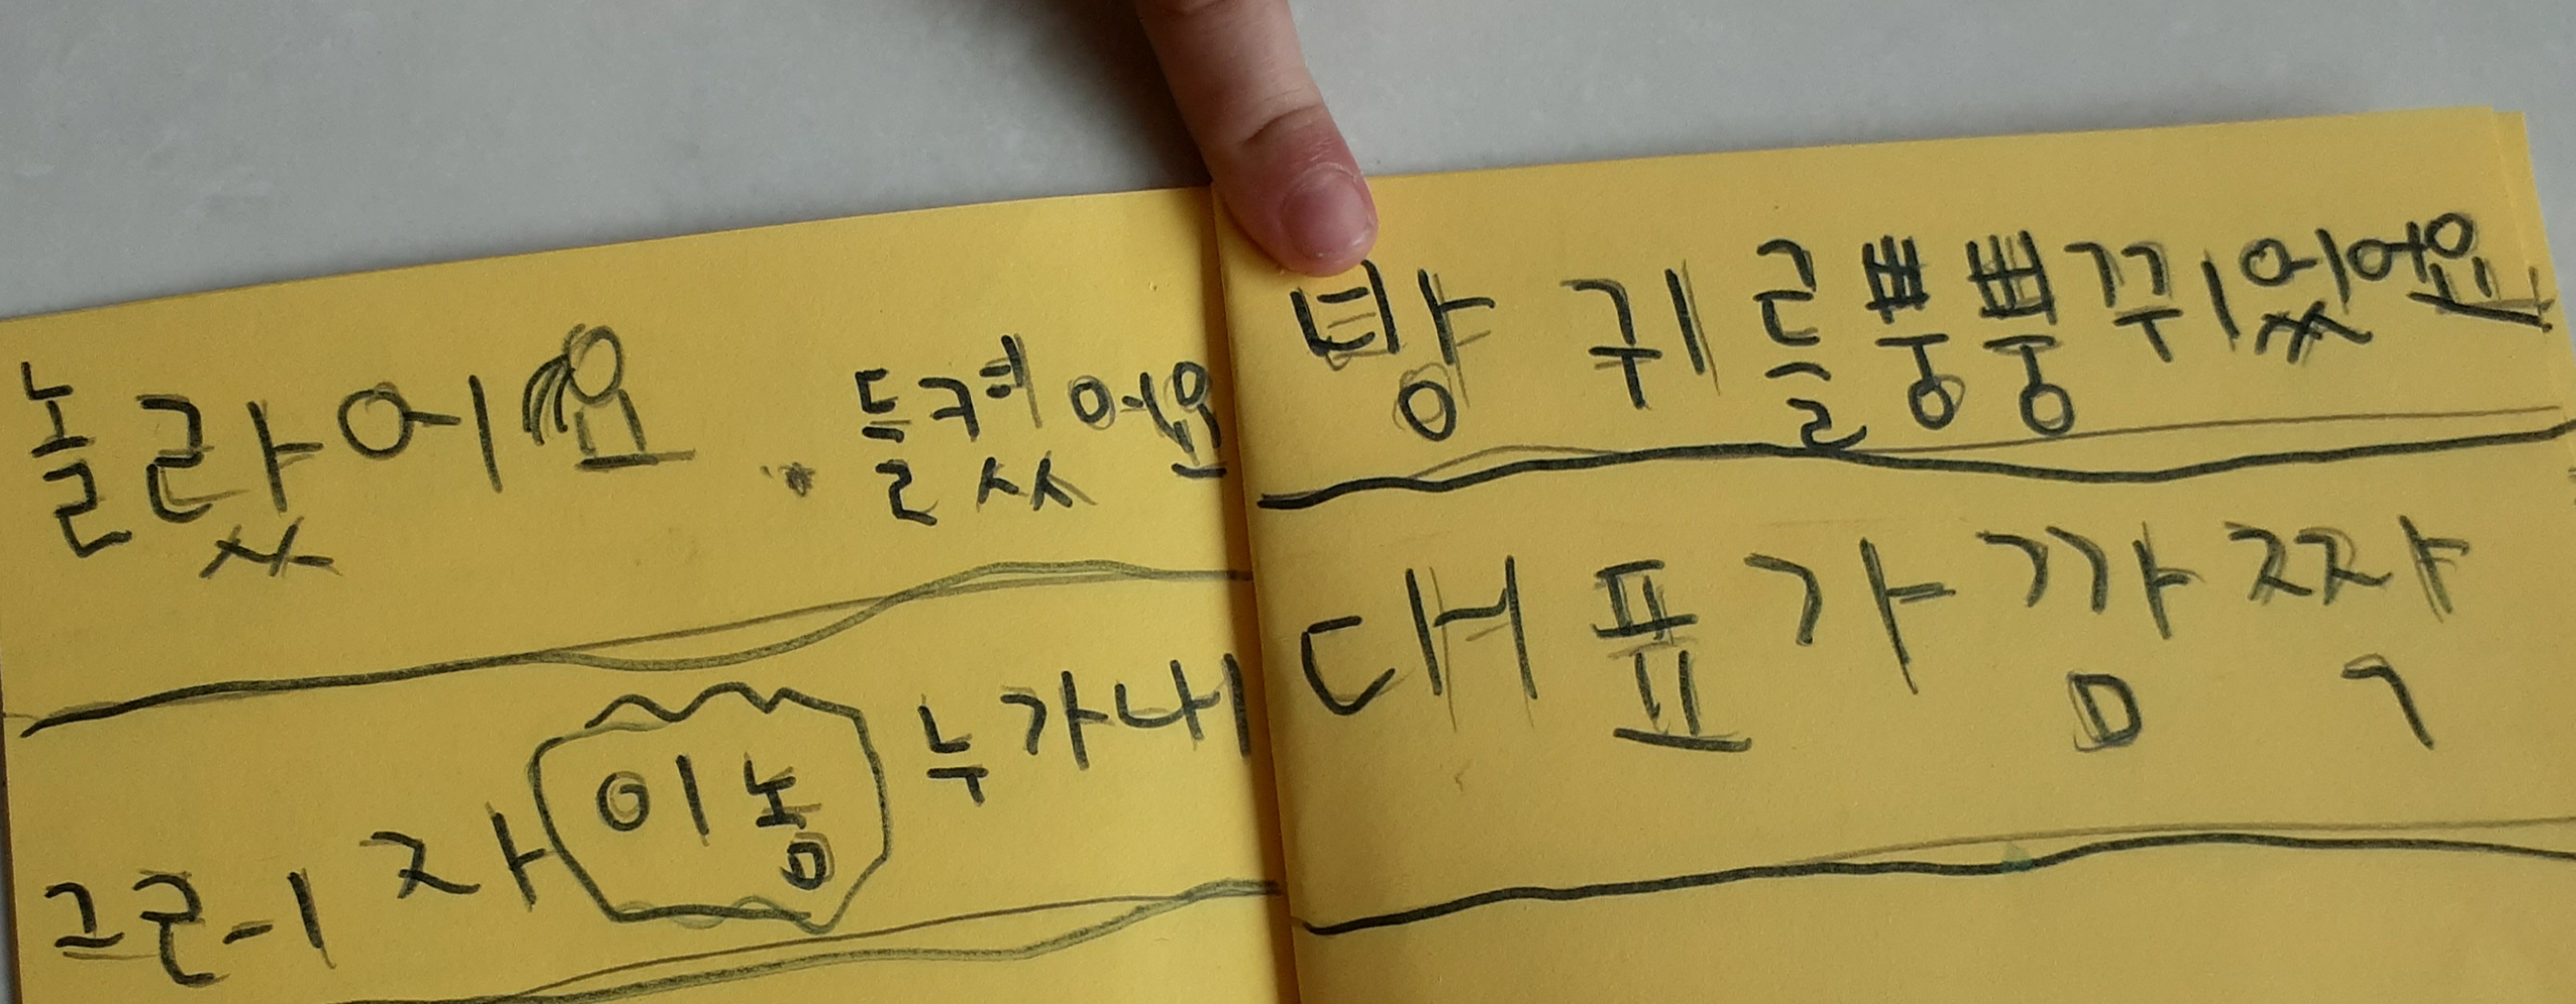 놀랐어요. 들켰어요
그러자 이놈 누가 내
방귀를뿡뿡뀌었어요
대표가 깜짝